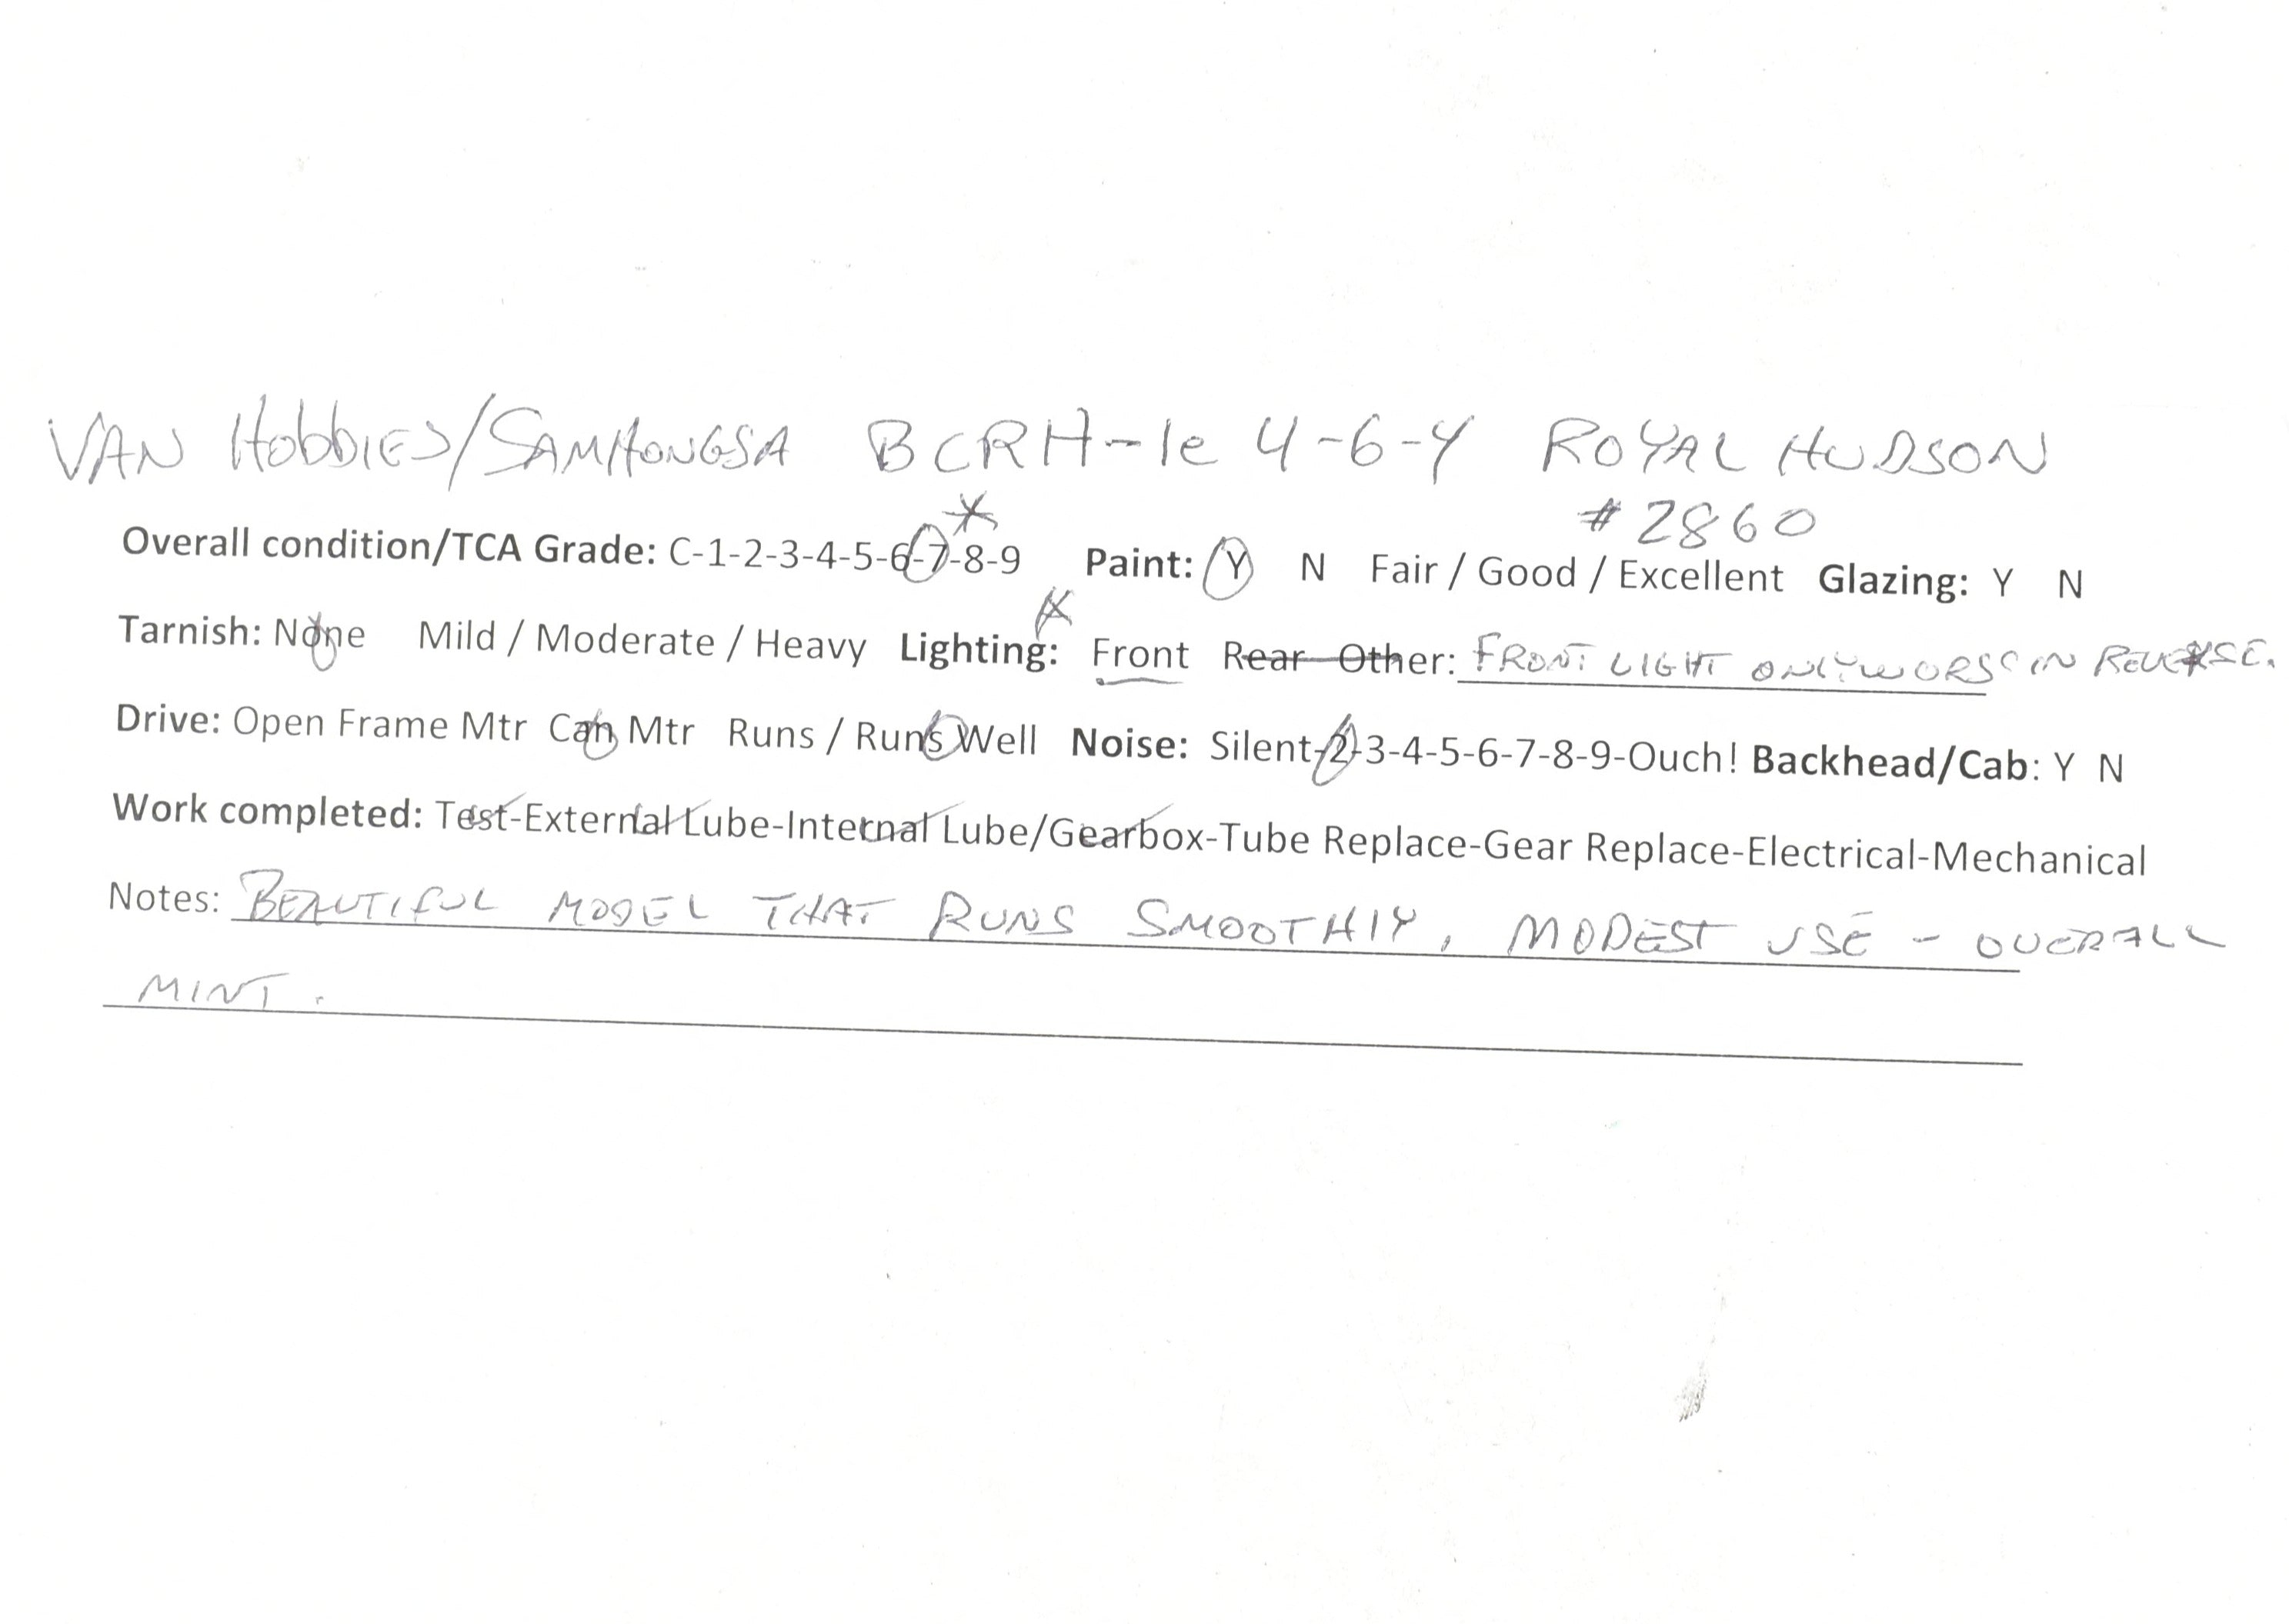 VAN HobbIES/SAMHONGSA BCRH-1e 4-6-4 ROYAL HUDSON
#2860
Overall condition/TCA Grade: C-1-2-3-4-5-6-7-8-9 Paint: Y N Fair / Good / Excellent Glazing: Y N
Tarnish: None Mild / Moderate / Heavy Lighting: Front Rear Other: FRONT LIGHT ONLY WORKS IN REVERSE.
Drive: Open Frame Mtr Can Mtr Runs / Runs Well Noise: Silent-2-3-4-5-6-7-8-9-Ouch! Backhead/Cab: Y N
Work completed: Test-External Lube-Internal Lube/Gearbox-Tube Replace-Gear Replace-Electrical-Mechanical
Notes: BEAUTIFUL MODEL THAT RUNS SMOOTHLY, MODEST USE - OVERALL
MINT.